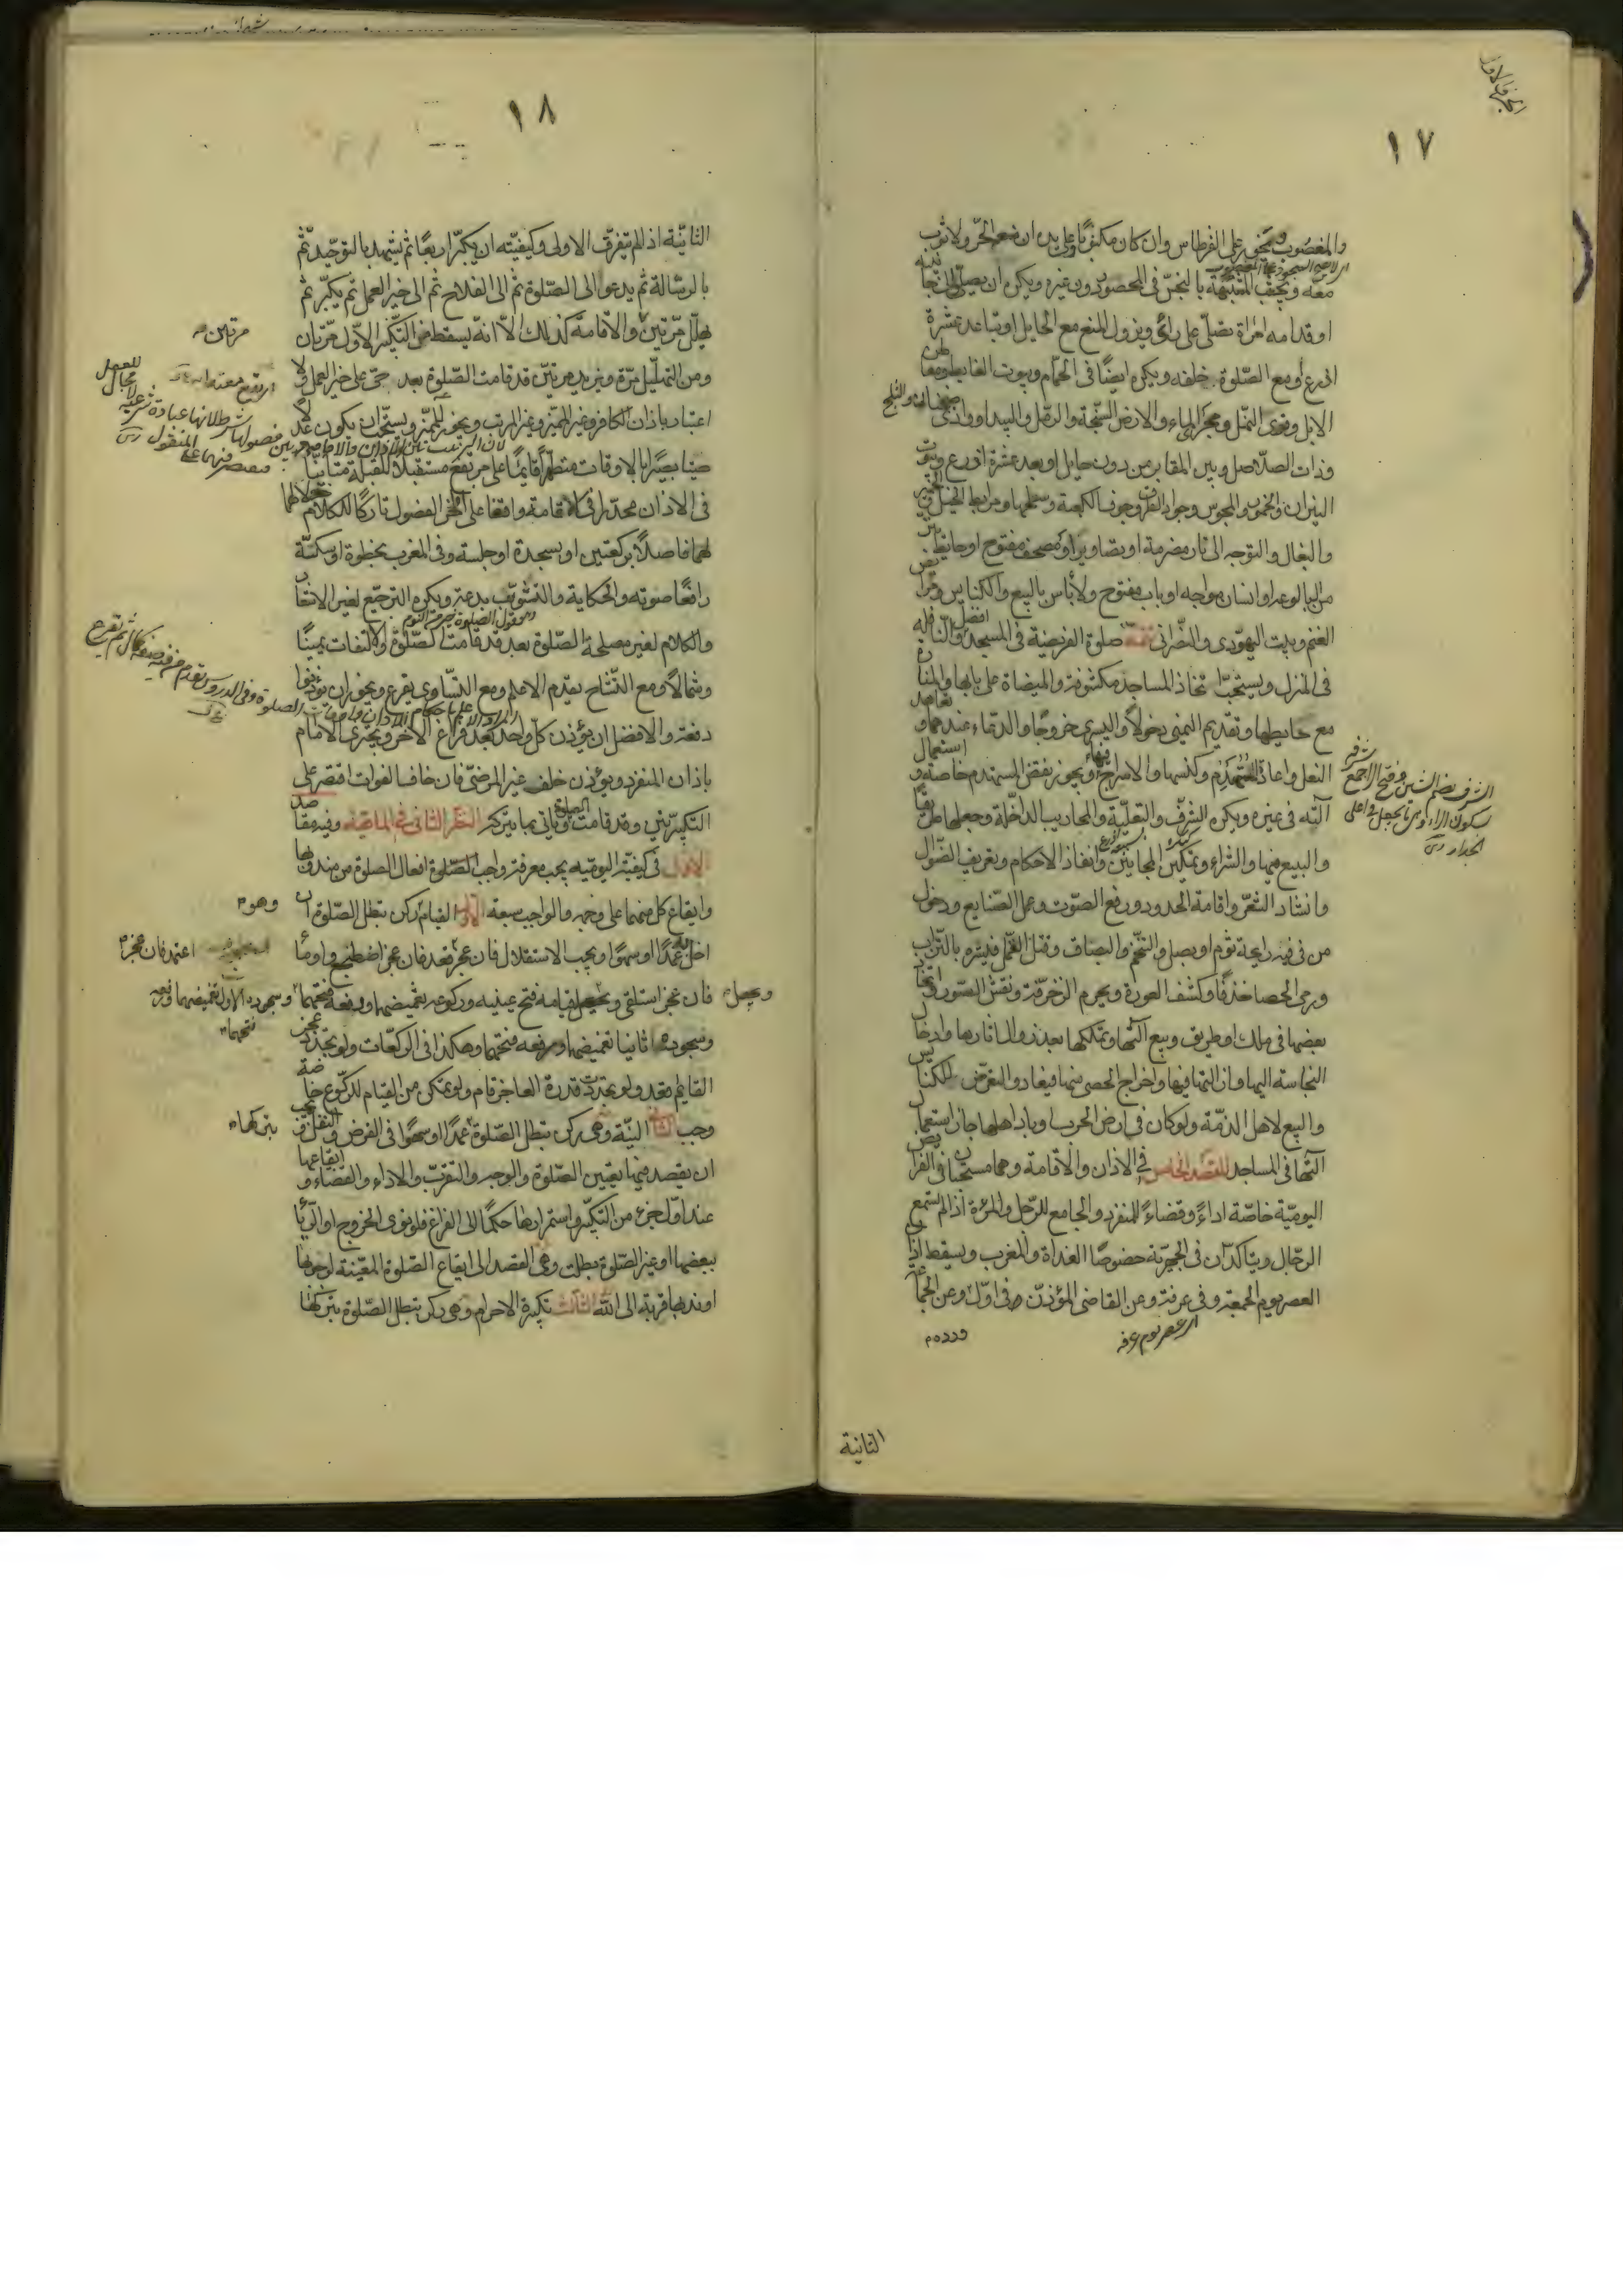 ١٧
والمغصوب ويجوز على القرطاس وان كان مكتوبا وعلى يده ان منعه الحر ولا ثوب
معه ويجتنب المشتبه بالنجس في المحصور دون غيره ويكره ان يصلي والى جانبه
او قدامه امراة تصلي على رأي ويزول المنع مع الحايل او تباعد عشرة
اذرع او مع الصلوة خلفه ويكره ايضا في الحمام وبيوت الغايط ومعاطن
الابل وقرى النمل ومجرى الماء والارض السبخة والرمل والبيداء ووادي ضجنان والثلج
وذات الصلاصل وبين المقابر من دون حايل او بعد عشرة اذرع وبيوت
النيران والخمور والمجوس وجواد الطرق وجوف الكعبة وسطحها ومرابط الخيل والحمير
والبغال والتوجه الى نار مضرمة او تصاوير او مصحف مفتوح او حايط ينز
من البالوعة او انسان مواجه او باب مفتوح ولا بأس بالبيع والكنايس ومرابض
الغنم وبيت اليهودي والنصراني تتمة صلوة الفريضة في المسجد افضل والنافلة
في المنزل ويستحب اتخاذ المساجد مكشوفة والميضاة على بابها والمنارة
مع حايطها وتقديم اليمنى دخولا واليسرى خروجا والدعاء عندهما وتعاهد
النعل واعادة المستهدم وكنسها والاسراج فيها ويجوز نقض المستهدم خاصة واستعمال
آلته في غيره ويكره الشرف والتعلية والمحاريب الداخلة وجعلها طريقا
والبيع فيها والشراء وتمكين المجانين وانفاذ الاحكام وتعريف الضوال
وانشاد الشعر واقامة الحدود ورفع الصوت وعمل الصنايع ودخول
من في فيه رايحة ثوم او بصل والتنخم والبصاق وقتل القمل فيستره بالتراب
ورمي الحصا خذفا وكشف العورة ويحرم الزخرفة ونقش الصور واتخاذ
بعضها في ملك او طريق وبيع آلتها وتملكها بعد زوال اثارها وادخال
النجاسة اليها وازالتها فيها واخراج الحصى منها فيعاد والتعرض للكنايس
والبيع لاهل الذمة ولو كان في ارض الحرب او باد اهلها جاز استعمال
آلتها في المساجد المقصد الخامس في الاذان والاقامة وهما مستحبان في الفرايض
اليومية خاصة اداء وقضاء للمنفرد والجامع للرجل والمرءة اذا لم تسمع
الرجال ويتاكدان في الجهرية خصوصا الغداة والمغرب ويسقط اذان
العصر يوم الجمعة وفي عرفة وعن القاضي المؤذن في اول ورده وعن الجماعة
اي عصر يوم عرفة
الثانية
١٨
الثانية اذا لم يتفرق الاولى وكيفيته ان يكبر اربعا ثم يشهد بالتوحيد ثم
بالرسالة ثم يدعو الى الصلوة ثم الى الفلاح ثم الى خير العمل ثم يكبر ثم
يهلل مرتين مرتين والاقامة كذلك الا انه يسقط من التكبير الاول مرتان
ومن التهليل مرة ويزيد مرتين قد قامت الصلوة بعد حي على خير العمل ولا
اعتبار باذان الكافر وغير المميز وغير المرتب ويجوز للمميز ويستحب ان يكون عدلا
صيتا بصيرا بالاوقات متطهرا قايما على مرتفع مستقبلا للقبلة متأنيا
في الاذان محدرا في الاقامة واقفا على اخر الفصول تاركا للكلام خلالهما
لهما فاصلا بركعتين او بسجدة او جلسة وفي المغرب بخطوة او سكتة
رافعا صوته والحكاية والتثويب بدعة ويكره الترجيع لغير الاشعار
والكلام لغير مصلحة الصلوة بعد قد قامت الصلوة والالتفات يمينا
وشمالا ومع التشاح يقدم الاعلم ومع التساوي يقرع ويجوز ان يؤذنوا
دفعة والافضل ان يؤذن كل واحد بعد فراغ الاخر ويجتزى الامام
باذان المنفرد ويؤذن خلف غير المرضي فان خاف الفوات اقتصر على
التكبيرتين وقد قامت الصلوة وياتي بما يتركه النظر الثاني في الماهية وفيه مقاصد
الاول في كيفية اليومية يجب معرفة واجب الصلوة افعال الصلوة من مندوبها
وايقاع كل منهما على وجهه والواجب سبعة الاول القيام وهو ركن تبطل الصلوة ان
اخل به عمدا او سهوا ويجب الاستقلال فان عجز اعتمد فان عجز قعد فان عجز اضطجع واومأ
فان عجز استلقى ويجعل قيامه فتح عينيه وركوعه تغميضهما ورفعه فتحهما وسجوده الاول تغميضهما ورفعه فتحهما
وسجوده ثانيا تغميضهما ورفعه فتحهما وهكذا في الركعات ولو تجدد عجز
القايم قعد ولو تجددت قدرة العاجز قام ولو تمكن من القيام للركوع خاصة
وجب الثاني النية وهي ركن تبطل الصلوة بتركها عمدا او سهوا في الفرض والنفل ويجب
ان يقصد فيها تعيين الصلوة والوجه والتقرب والاداء والقضاء وايقاعها
عند اول جزء من التكبير واستمرارها حكما الى الفراغ فلو نوى الخروج او الريا
ببعضها او غير الصلوة بطلت وهي القصد الى ايقاع الصلوة المعينة لوجوبها
او ندبها قربة الى الله الثالث تكبيرة الاحرام وهي ركن تبطل الصلوة بتركها